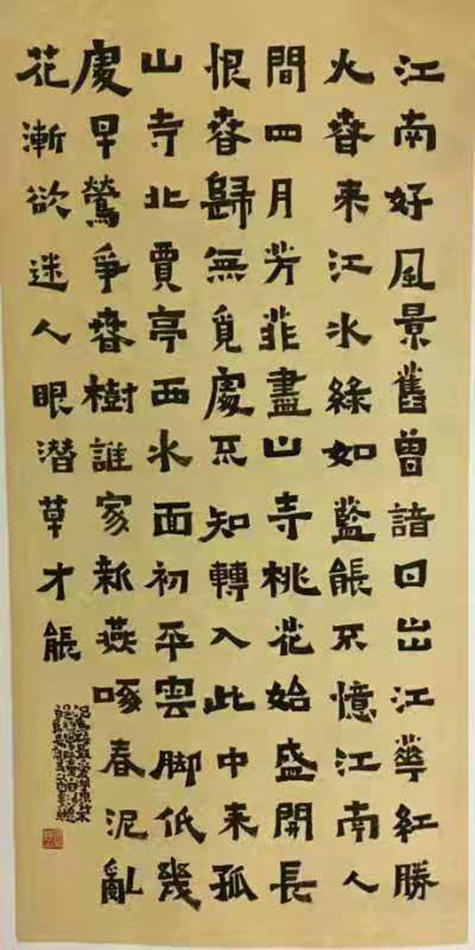 江南好風景舊曾諳日出江華紅勝
火春来江水綠如藍能不憶江南人
間四月芳菲盡山寺桃花始盛開長
恨春歸無覓處不知轉入此中来孤
山寺北賈亭西水面初平雲脚低幾
處早鶯爭春樹誰家新燕啄春泥亂
花漸欲迷人眼潜草才能